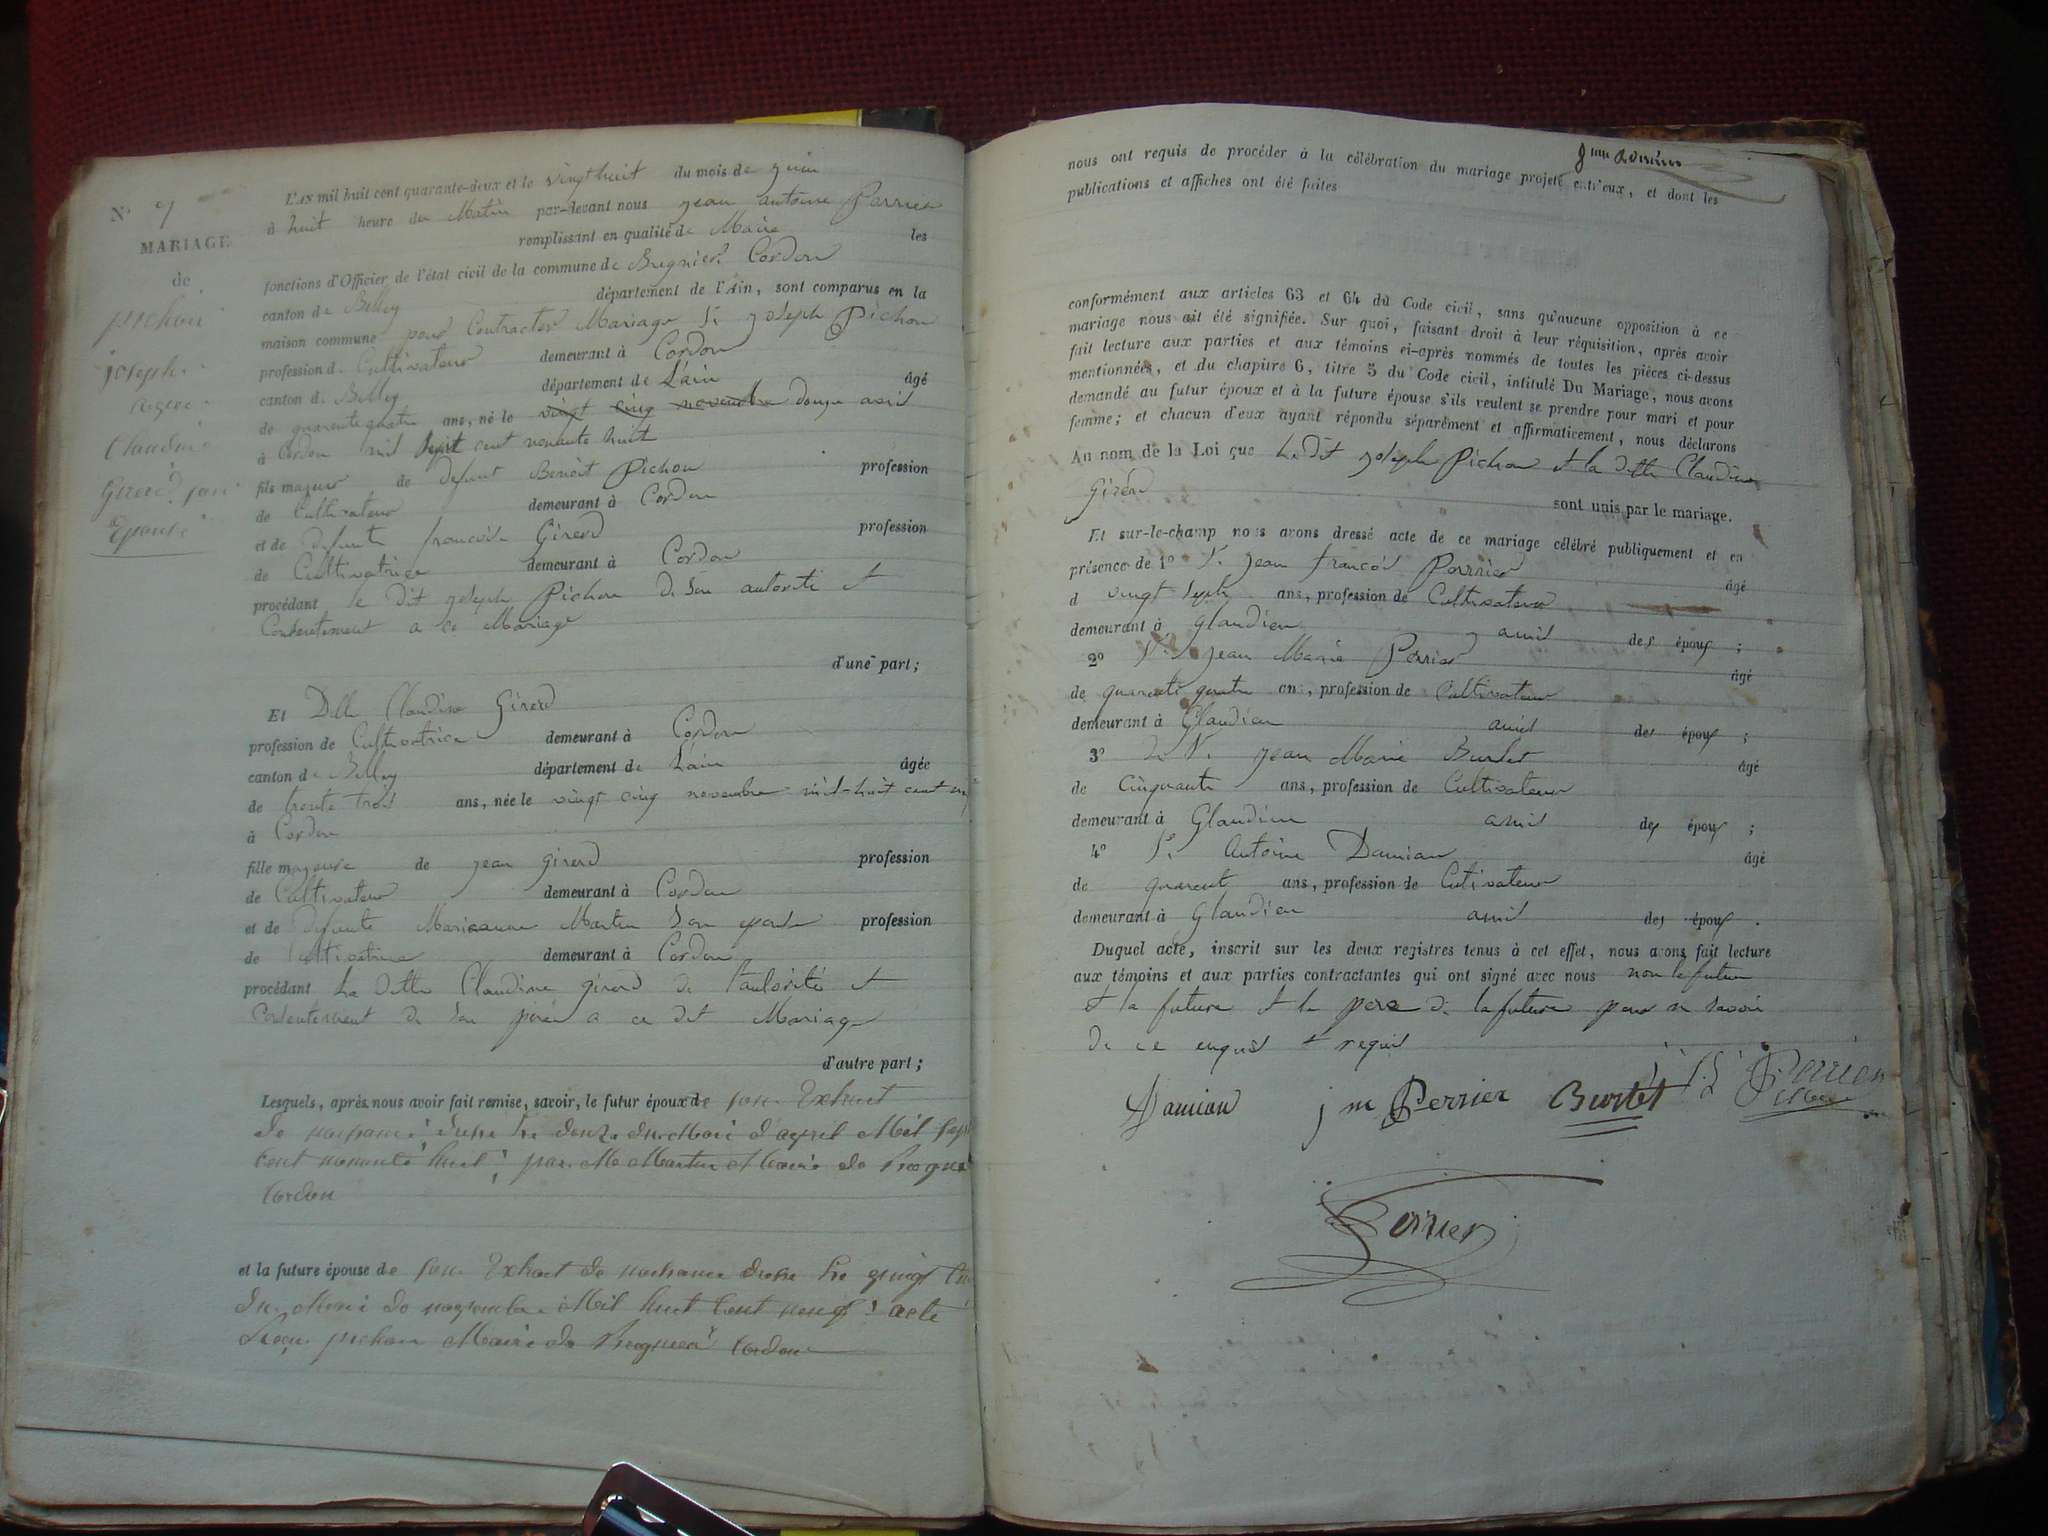 N° 7
MARIAGE
de
pichon
joseph
Claudine
Girerd son
Epouse
L'AN mil huit cent quarante-deux et le vingt huit du mois de juin
à huit heure du Matin par-devant nous jean antoine Perrier
remplissant en qualité de Maire les
fonctions d'Officier de l'état civil de la commune de Bregnier Cordon
canton de Belley département de l'Ain, sont comparus en la
maison commune pour Contracter Mariage Sr joseph Pichon
profession de Cultivateur demeurant à Cordon
canton de Belley département de L'ain âgé
de quarente quatre ans, né le vingt cinq novembre douze avril
à Cordon mil sept cent nonante huit
fils majeur de defunt Benoit Pichon profession
de Cultivateur demeurant à Cordon
et de defunte francoise Girerd profession
de Cultivatrice demeurant à Cordon
procédant le dit joseph Pichon de son autorité et
Consentement a ce Mariage
d'une part ;
Et Dlle Claudine Girerd
profession de Cultivatrice demeurant à Cordon
canton de Belley département de L'ain âgée
de trente trois ans, née le vingt cinq novembre mil-huit cent
à Cordon
fille majeure de jean Girerd profession
de Cultivateur demeurant à Cordon
et de defunte Marieanne Martin son epouse profession
de Cultivatrice demeurant à Cordon
procédant La ditte Claudine Girerd de l'autorité et
Consentement de son père a ce dit Mariage
d'autre part ;
Lesquels, après nous avoir fait remise, savoir, le futur époux de son Extrait
de naissance le douze du Moi d'avril Mil sept
cent nonante huit par Me Martin Maire de
Cordon
et la future épouse de son Extrait de naissance le vingt
du Moi de novembre Mil huit cent neuf acte
Recu pichon Maire de Bregnier Cordon
nous ont requis de procéder à la célébration du mariage projeté entr'eux, et dont les
publications et affiches ont été faites
conformément aux articles 63 et 64 du Code civil, sans qu'aucune opposition à ce
mariage nous ait été signifiée. Sur quoi, faisant droit à leur réquisition, après avoir
fait lecture aux parties et aux témoins ci-après nommés de toutes les pièces ci-dessus
mentionnées, et du chapitre 6, titre 5 du Code civil, intitulé Du Mariage, nous avons
demandé au futur époux et à la future épouse s'ils veulent se prendre pour mari et pour
femme ; et chacun d'eux ayant répondu séparément et affirmativement, nous déclarons
Au nom de la Loi que Le dit joseph Pichon et la ditte Claudine
Girerd
sont unis par le mariage.
Et sur-le-champ nous avons dressé acte de ce mariage célébré publiquement et en
présence de 1° Sr jean francois Perrier âgé
d vingt sept ans, profession de Cultivateur
demeurant à Glandieu amis des époux ;
2° Sr jean Marie Perrier âgé
de quarente quatre ans, profession de Cultivateur
demeurant à Glandieu amis des époux ;
3° de Sr jean Marie Burlet âgé
de Cinquante ans, profession de Cultivateur
demeurant à Glandieu amis des époux ;
4° Sr Antoine Damian âgé
de quarent ans, profession de Cutivateur
demeurant à Glandieu amis des époux .
Duquel acte, inscrit sur les deux registres tenus à cet effet, nous avons fait lecture
aux témoins et aux parties contractantes qui ont signé avec nous non le futur
et la future et le pere de la future pour ne savoir
de ce enquis et requis
Damian j m Perrier Burlet Perrier
Perrier